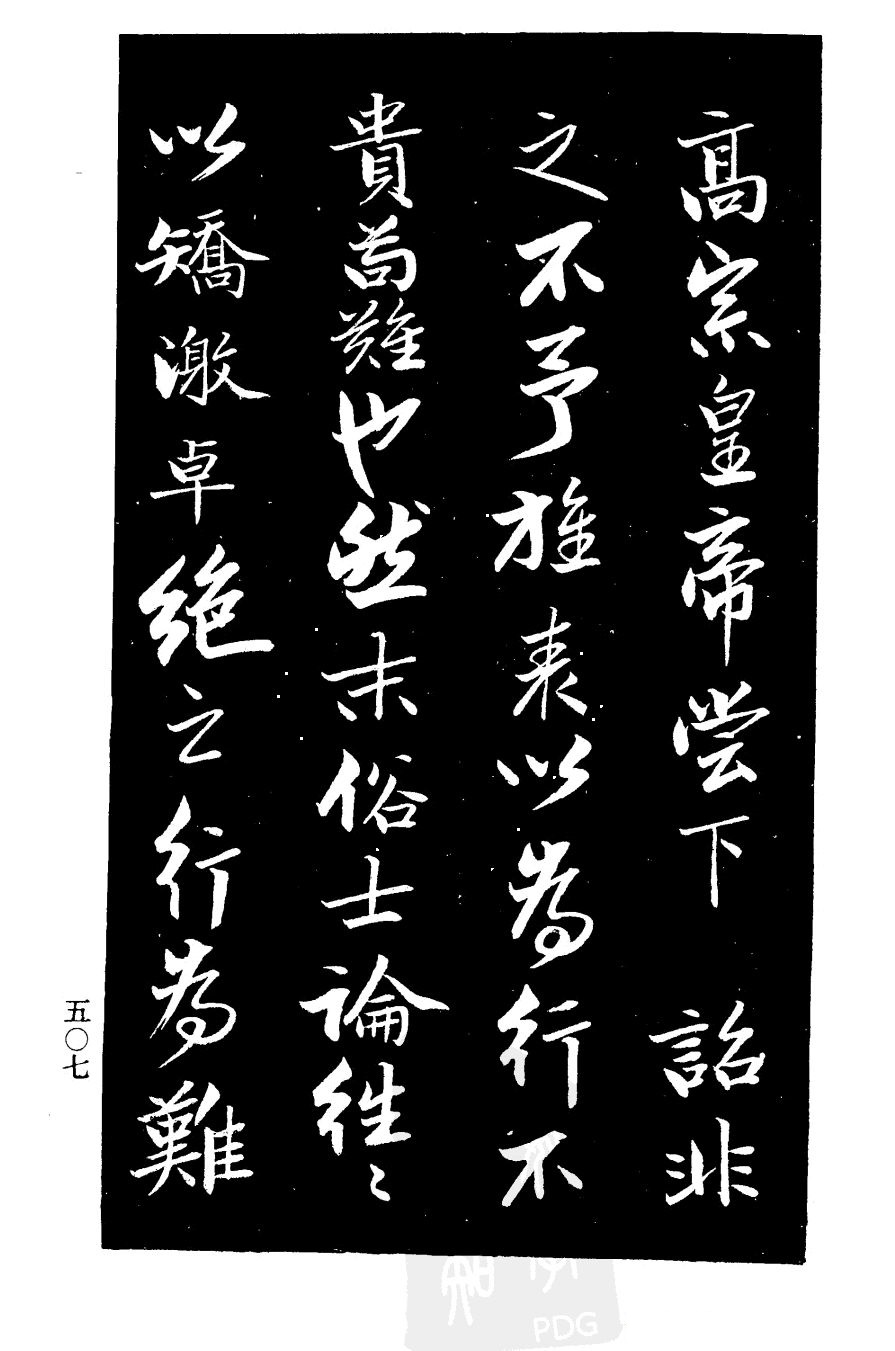 高宗皇帝嘗下 詔非
之不予旌表以為行不
貴苟難也然末俗士論往〻
以矯激卓絕之行為難
五〇七
PDG